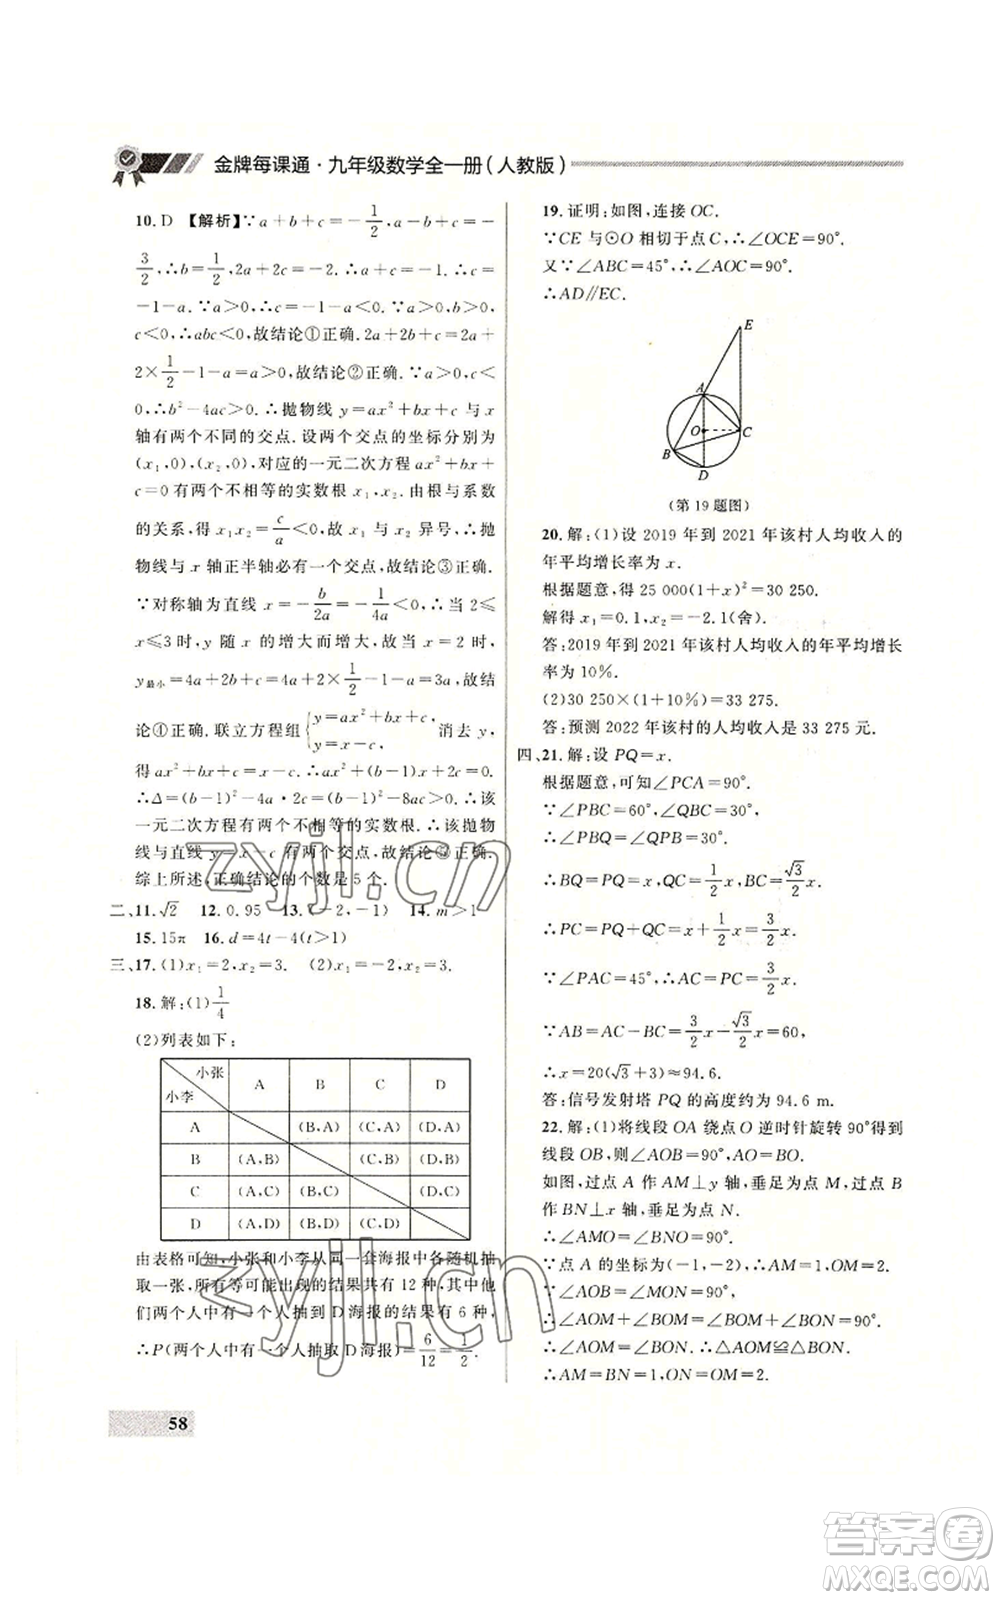 金牌每课通·九年级数学全一册(人教版)
10. D 【解析】∵a+b+c=-1/2,a-b+c=-
3/2,∴b=1/2,2a+2c=-2.∴a+c=-1.∴c=
-1-a.∵a>0,∴c=-1-a<0.∵a>0,b>
0,c<0,∴abc<0,故结论①正确.2a+2b+c=2a+
2×1/2-1-a=a>0,故结论②正确.∵a>0,c<
0,∴b²-4ac>0.∴抛物线 y=ax²+bx+c 与 x
轴有两个不同的交点.设两个交点的坐标分别为
(x₁,0),(x₂,0),对应的一元二次方程 ax²+bx+
c=0 有两个不相等的实数根 x₁,x₂.由根与系数
的关系,得 x₁x₂=c/a<0,故 x₁与 x₂ 异号,∴抛
物线与 x 轴正半轴必有一个交点.故结论③正确.
∵对称轴为直线 x=-b/2a=-1/4a<0,∴当 2≤
x≤3 时,y 随 x 的增大而增大,故当 x=2 时,
y最小=4a+2b+c=4a+2×1/2-1-a=3a.故结
论④正确.联立方程组{y=ax²+bx+c, y=x+c. 消去 y,
得 ax²+bx+c=x+c.∴ax²+(b-1)x+2c=0.
∴Δ=(b-1)²-4a·2c=(b-1)²-8ac>0.∴该
一元二次方程有两个不相等的实数根.∴该抛物
线与直线 y=x-c 有两个交点,故结论⑤正确.
综上所述,正确结论的个数是 5 个.
二、11.√2 12. 0.95 13. (-2,-1) 14. m>1
15. 15π 16. d=4t-4(t>1)
三、17. (1)x₁=2,x₂=3. (2)x₁=-2,x₂=3.
18. 解:(1)1/4
(2)列表如下:
小张 小李 A B C D
A (B,A) (C,A) (D,A)
B (A,B) (C,B) (D,B)
C (A,C) (B,C) (D,C)
D (A,D) (B,D) (C,D)
由表格可知,小张和小李从同一套海报中各随机抽
取一张,所有等可能出现的结果共有 12 种,其中他
们两个人中有一个人抽到 D 海报的结果有 6 种,
∴P(两个人中有一个人抽取 D 海报)=6/12=1/2.
58
19. 证明:如图,连接 OC.
∵CE 与⊙O 相切于点 C,∴∠OCE=90°.
又∵∠ABC=45°,∴∠AOC=90°.
∴AD∥EC.
E
A
O
C
B
D
(第 19 题图)
20. 解:(1)设 2019 年到 2021 年该村人均收入的
年平均增长率为 x.
根据题意,得 25 000(1+x)²=30 250.
解得 x₁=0.1,x₂=-2.1(舍).
答:2019 年到 2021 年该村人均收入的年平均增长
率为 10%.
(2)30 250×(1+10%)=33 275.
答:预测 2022 年该村的人均收入是 33 275 元.
四、21. 解:设 PQ=x.
根据题意,可知∠PCA=90°.
∵∠PBC=60°,∠QBC=30°,
∴∠PBQ=∠QPB=30°.
∴BQ=PQ=x,QC=1/2x,BC=√3/2x.
∴PC=PQ+QC=x+1/2x=3/2x.
∵∠PAC=45°,∴AC=PC=3/2x.
∵AB=AC-BC=3/2x-√3/2x=60,
∴x=20(√3+3)≈94.6.
答:信号发射塔 PQ 的高度约为 94.6 m.
22. 解:(1)将线段 OA 绕点 O 逆时针旋转 90°得到
线段 OB,则∠AOB=90°,AO=BO.
如图,过点 A 作 AM⊥y 轴,垂足为点 M,过点 B
作 BN⊥x 轴,垂足为点 N.
∴∠AMO=∠BNO=90°.
∵点 A 的坐标为(-1,-2),∴AM=1,OM=2.
∵∠AOB=∠MON=90°,
∴∠AOM+∠BOM=∠BOM+∠BON=90°.
∴∠AOM=∠BON.∴△AOM≌△BON.
∴AM=BN=1,ON=OM=2.
zyjl.cn
zyjl.cn
答案卷
MXQE.COM